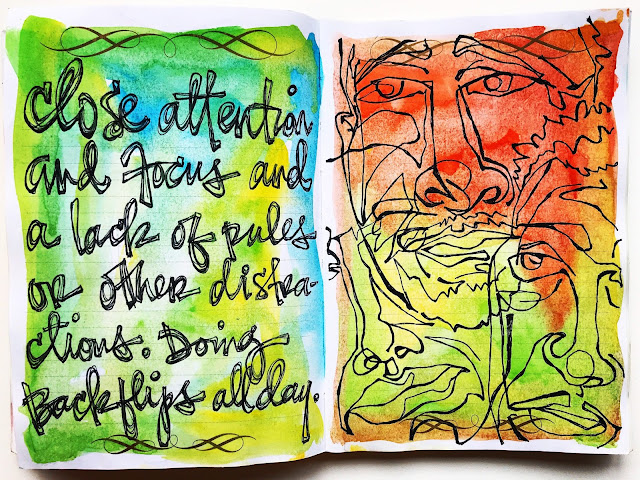 close attention
and focus and
a lack of rules
or other distra-
ctions. Doing
Backflips all day.